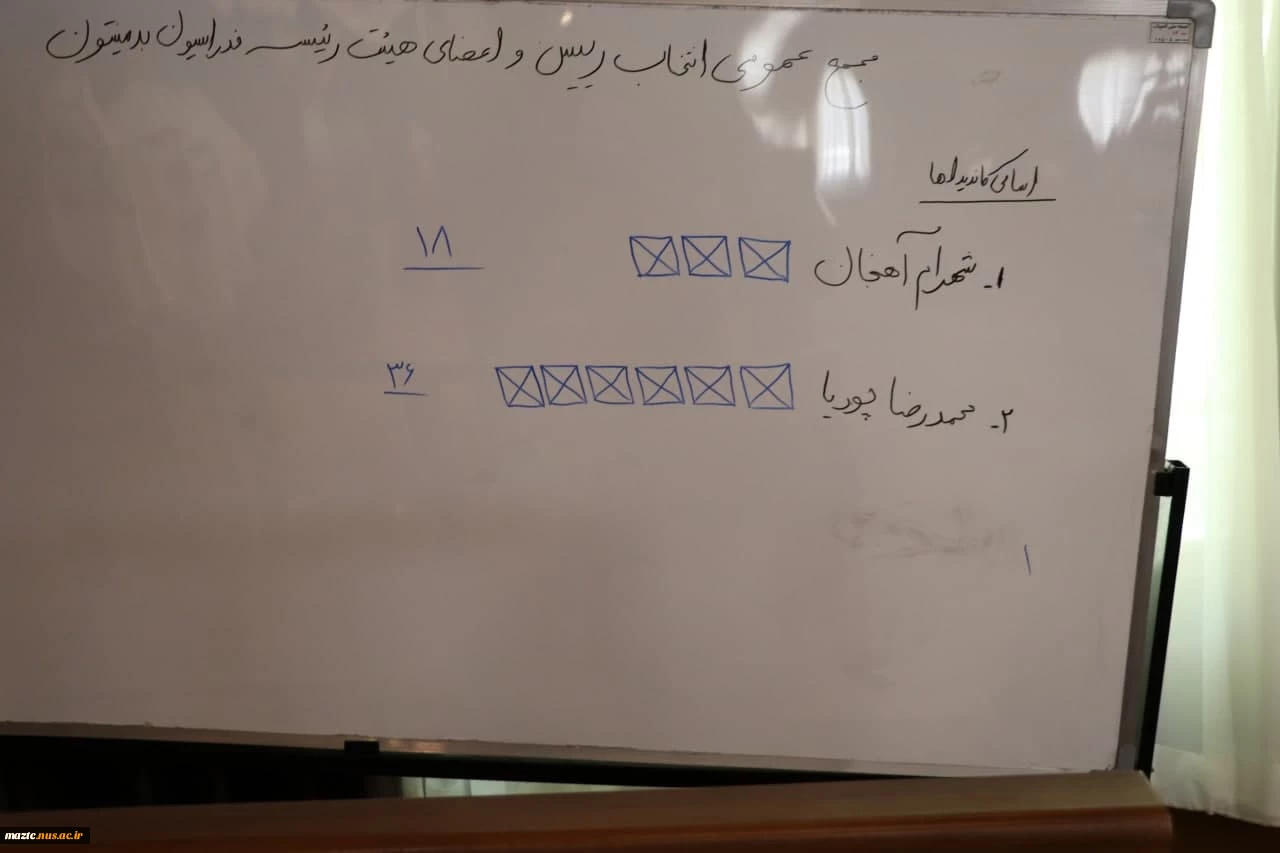 مجمع عمومی انتخاب رییس و اعضای هیئت رئیسه فدراسیون بدمینتون
اسامی کاندیداها
۱- شهرام آهنجان ۱۸
۲- محمدرضا پوریا ۳۶
۱
maztc.nus.ac.ir